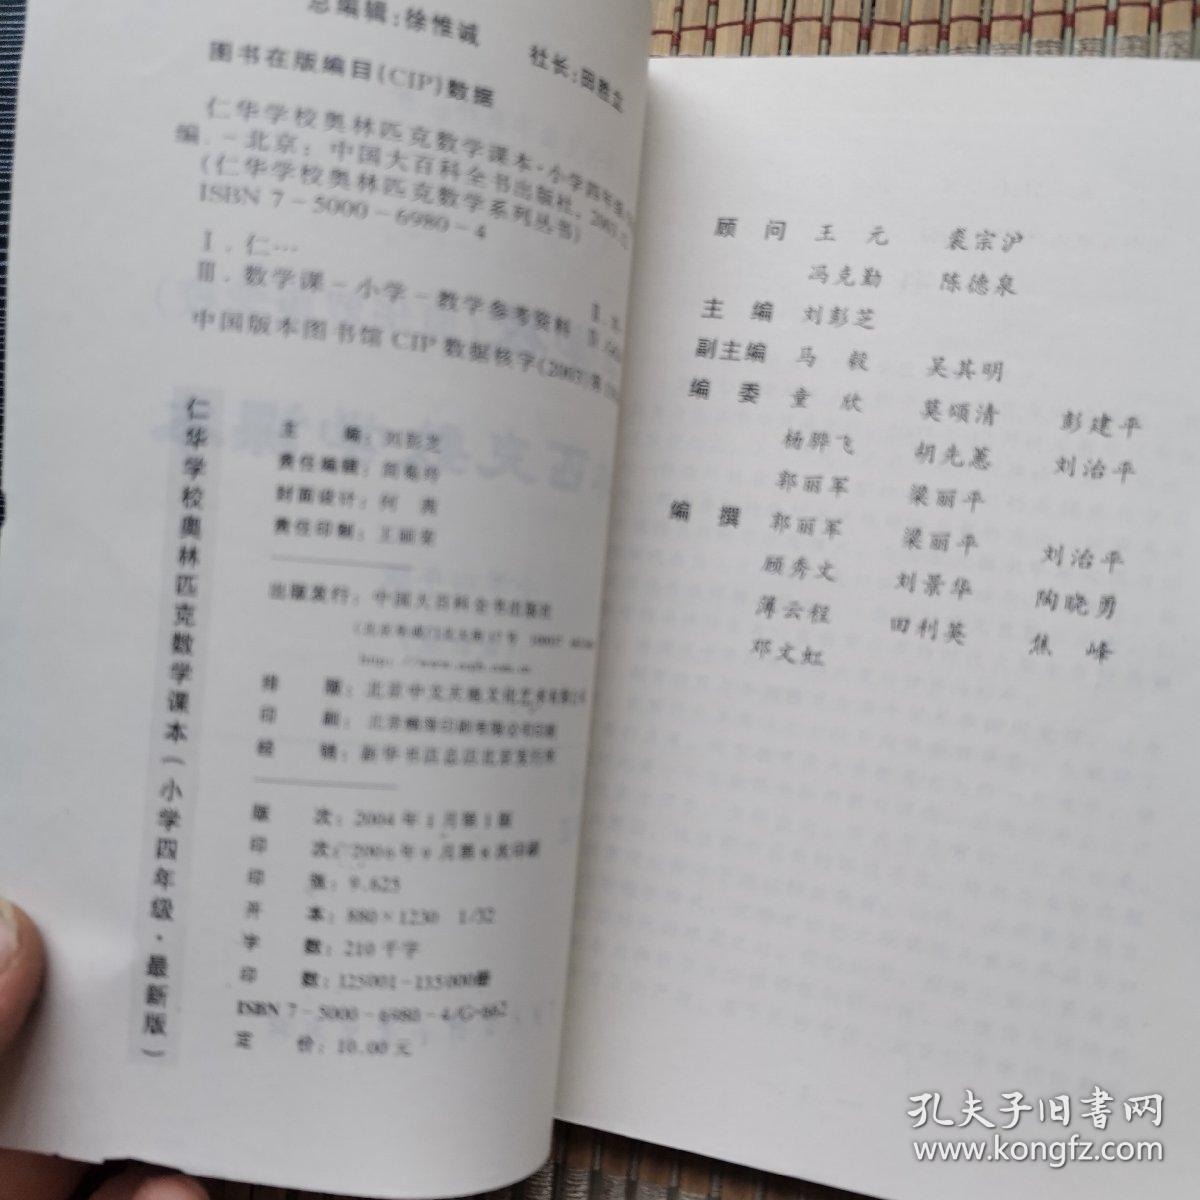 总编辑：徐惟诚 社长：田胜立
图书在版编目(CIP)数据
仁华学校奥林匹克数学课本·小学四年级
编.－北京：中国大百科全书出版社，2003.
(仁华学校奥林匹克数学系列丛书)
ISBN 7－5000－6980－4
Ⅰ.仁…
Ⅲ.数学课－小学－教学参考资料
中国版本图书馆CIP数据核字(2003)第
仁华学校奥林匹克数学课本(小学四年级·最新版)
主 编：刘彭芝
责任编辑：
封面设计：何
责任印制：王丽
出版发行：中国大百科全书出版社
排 版：
印 刷：
经 销：新华书店总店北京发行所
版 次：2004年1月第1版
印 次：2006年
印 张：9.625
开 本：880×1230 1/32
字 数：210千字
印 数：125001－135000册
ISBN 7－5000－6980－4/G·662
定 价：10.00元
顾 问 王 元 裘宗沪
冯克勤 陈德泉
主 编 刘彭芝
副主编 马 毅 吴其明
编 委 童 欣 莫颂清 彭建平
杨骅飞 胡先蕙 刘治平
郭丽军 梁丽平
编 撰 郭丽军 梁丽平 刘治平
顾秀文 刘景华 陶晓勇
薄云程 田利英 焦 峰
邓文虹
孔夫子旧书网
www.kongfz.com